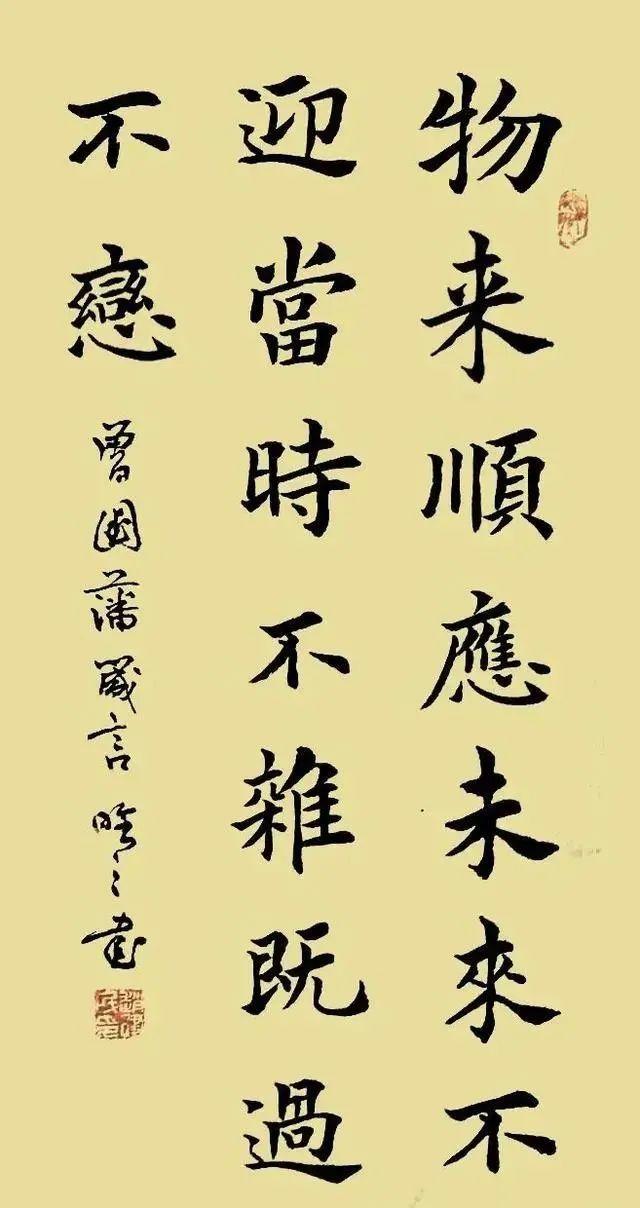 物来順應未來不
迎當時不雜既過
不戀
曾国藩箴言 晗〻书